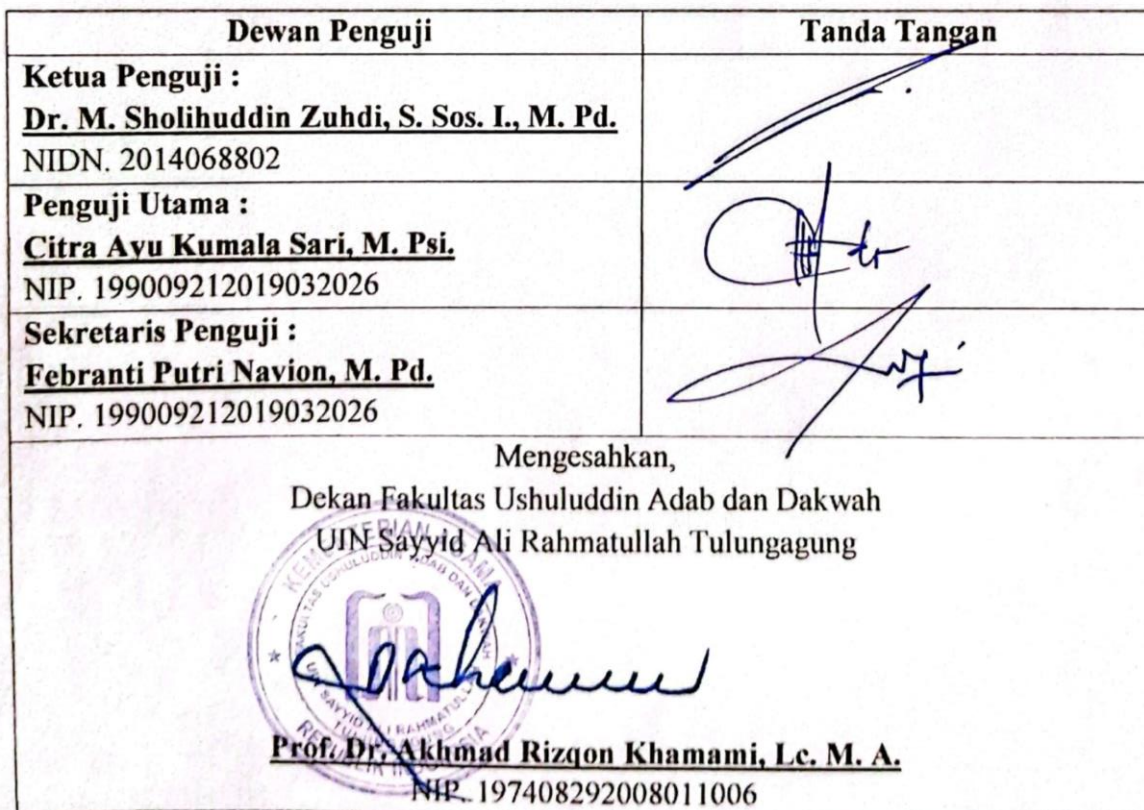 Dewan Penguji
Tanda Tangan
Ketua Penguji :
Dr. M. Sholihuddin Zuhdi, S. Sos. I., M. Pd.
NIDN. 2014068802
Penguji Utama :
Citra Ayu Kumala Sari, M. Psi.
NIP. 199009212019032026
Sekretaris Penguji :
Febranti Putri Navion, M. Pd.
NIP. 199009212019032026
Mengesahkan,
Dekan Fakultas Ushuluddin Adab dan Dakwah
UIN Sayyid Ali Rahmatullah Tulungagung
KEMENTERIAN AGAMA
FAKULTAS USHULUDDIN ADAB DAN DAKWAH
UIN SAYYID ALI RAHMATULLAH
TULUNGAGUNG
REPUBLIK INDONESIA
Prof. Dr. Akhmad Rizqon Khamami, Lc. M. A.
NIP. 197408292008011006